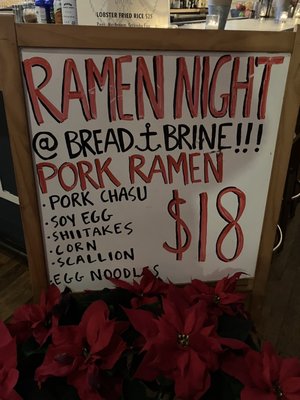 LOBSTER FRIED RICE $25
RAMEN NIGHT
@ BREAD & BRINE!!!
PORK RAMEN
· PORK CHASU
· SOY EGG
· SHIITAKES
· CORN
· SCALLION
· EGG NOODLES
$18